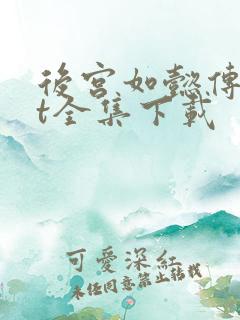 後宮如懿傳
t全集下載
可愛深紅
未经同意禁止转载